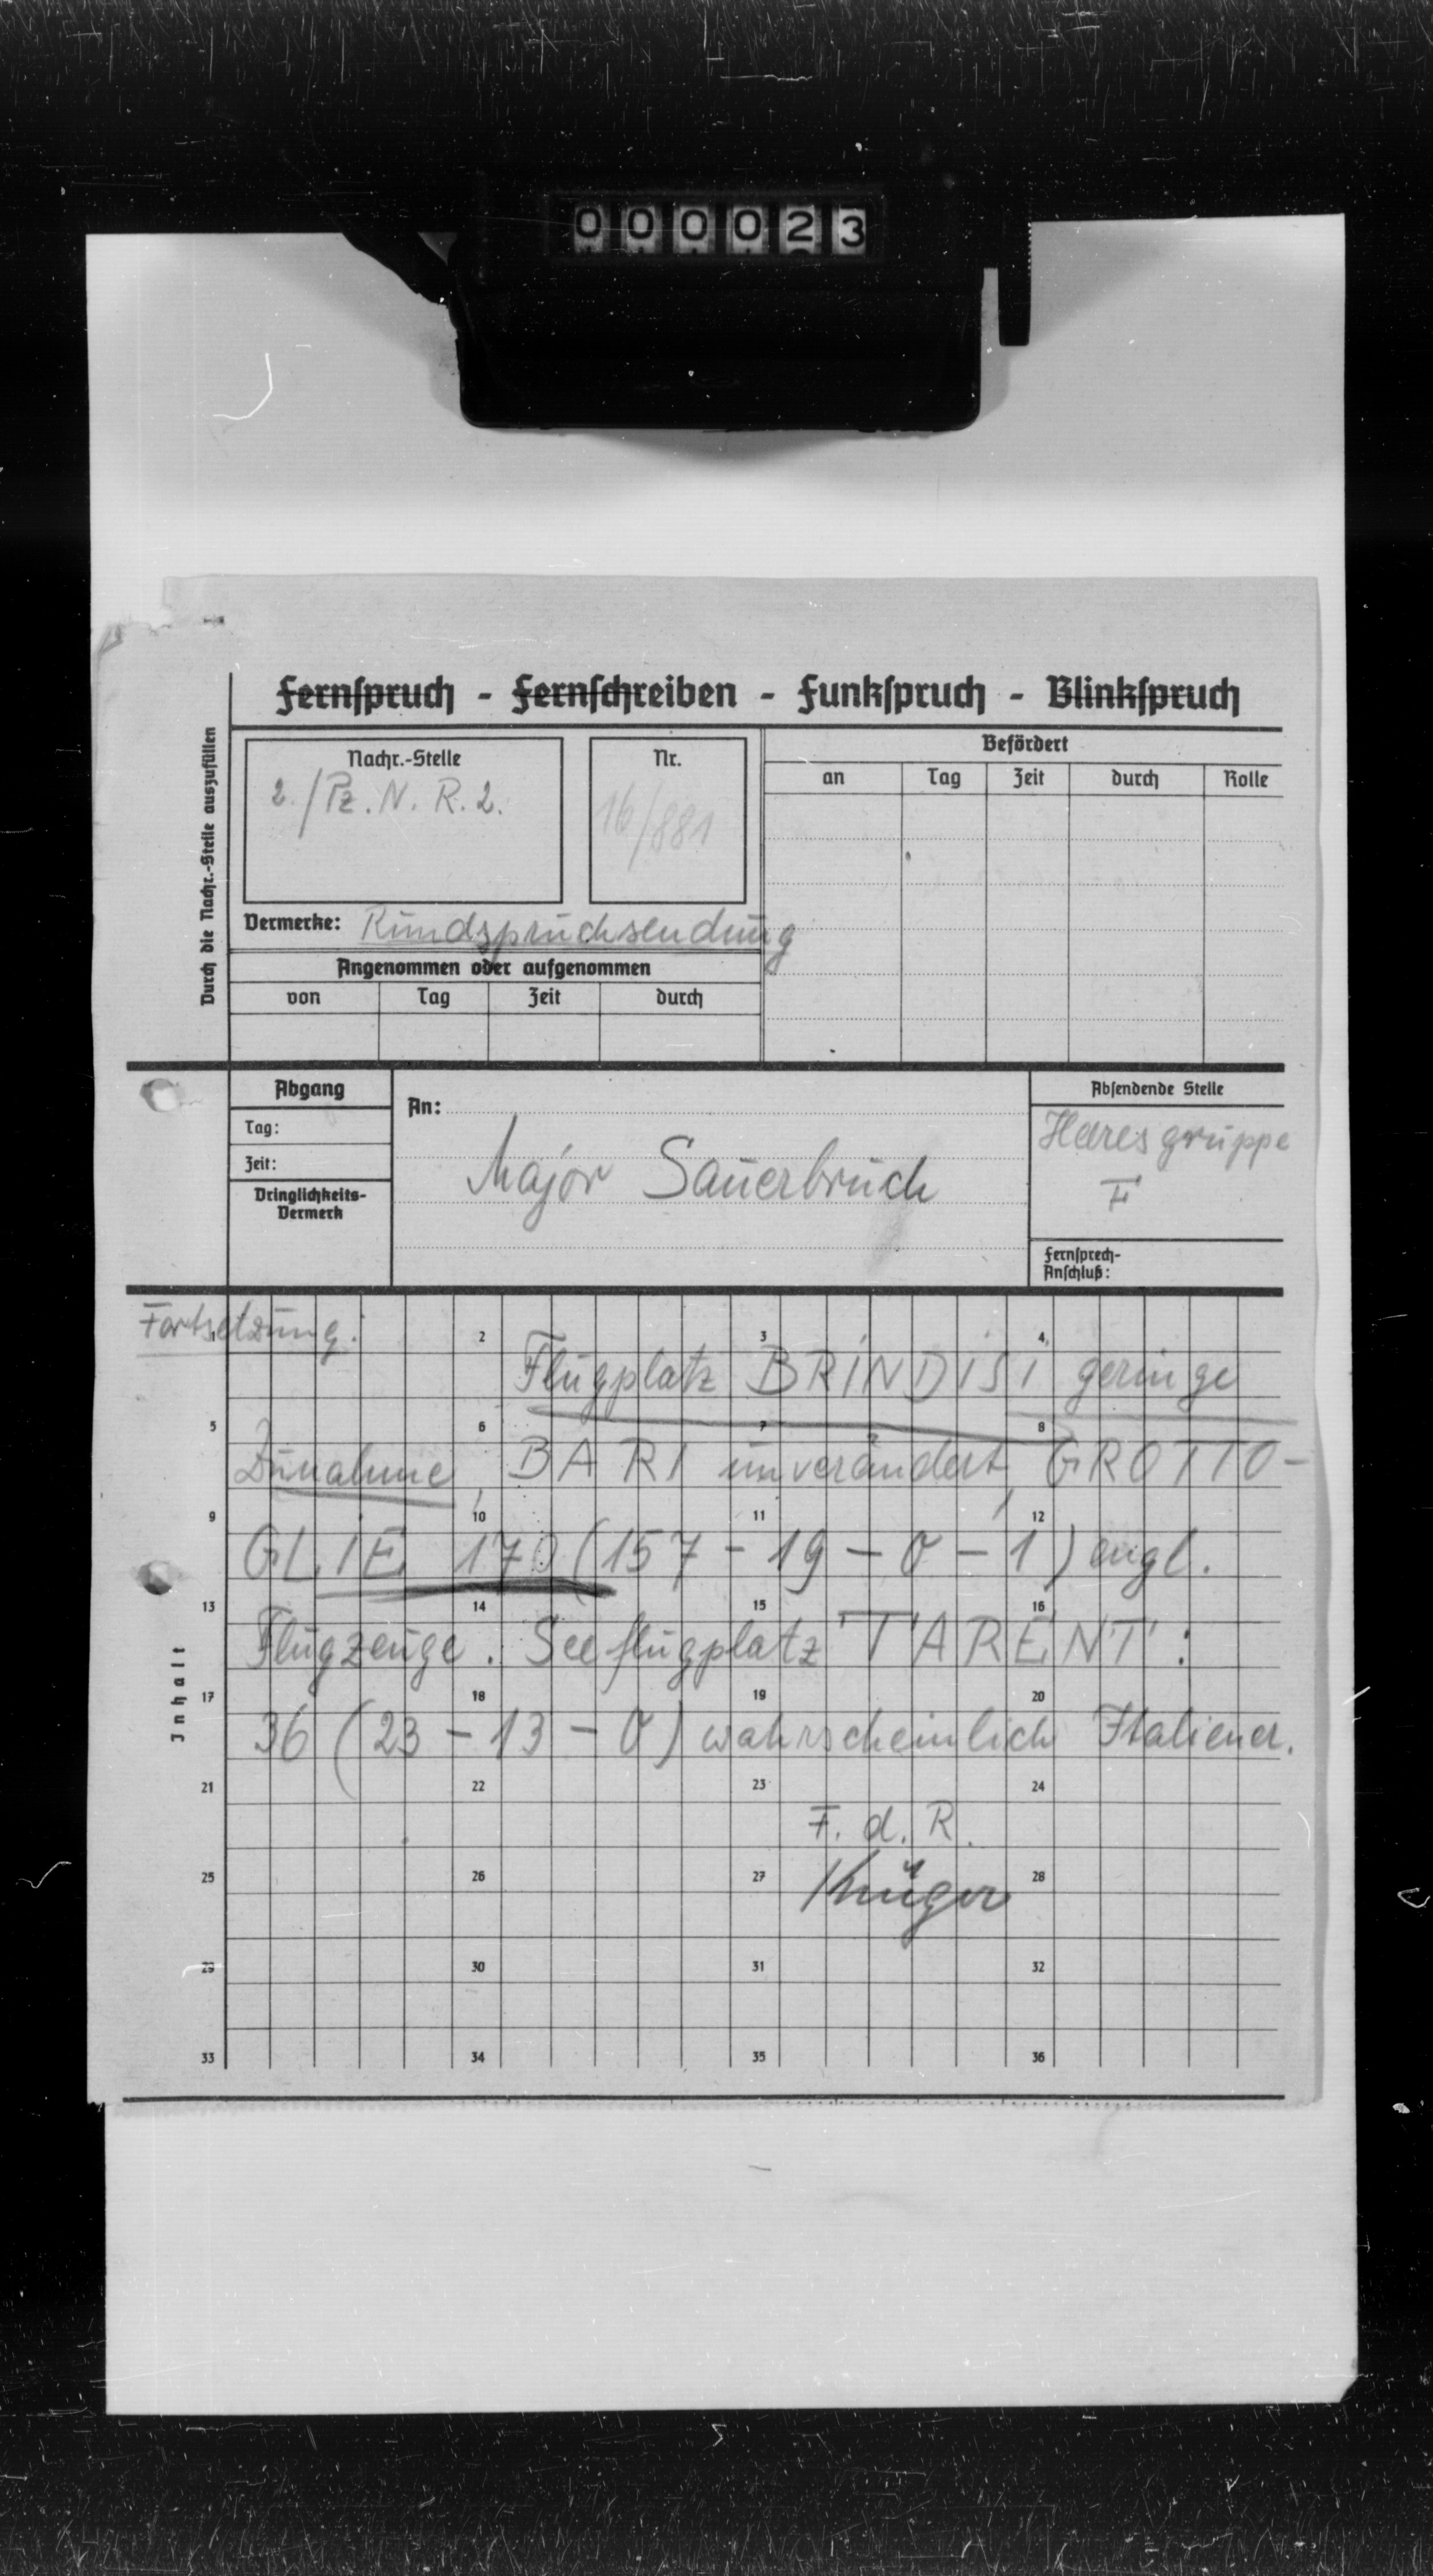 000023
Fernspruch - Fernschreiben - Funkspruch - Blinkspruch
Durch die Nachr.-Stelle auszufüllen
Nachr.-Stelle
2./Pz. N. R. 2.
Nr.
16/881
Befördert
an Tag Zeit durch Rolle
Vermerke: Rundspruchsendung
Angenommen oder aufgenommen
von Tag Zeit durch
Abgang
Tag:
Zeit:
Dringlichkeits-
Vermerk
An:
Major Sauerbruch
Absendende Stelle
Heeresgruppe
F
Fernsprech-
Anschluß:
Inhalt
Fortsetzung:
2 3 4
Flugplatz BRINDISI geringe
5 6 7 8
Zunahme, BARI unverändert, GROTTO-
9 10 11 12
GLIE 170 (157 - 19 - 0 - 1) engl.
13 14 15 16
Flugzeuge. Seeflugplatz TARENT:
17 18 19 20
36 (23 - 13 - 0) wahrscheinlich Italiener.
21 22 23 24
F. d. R.
25 26 27 28
Krüger
29 30 31 32
33 34 35 36